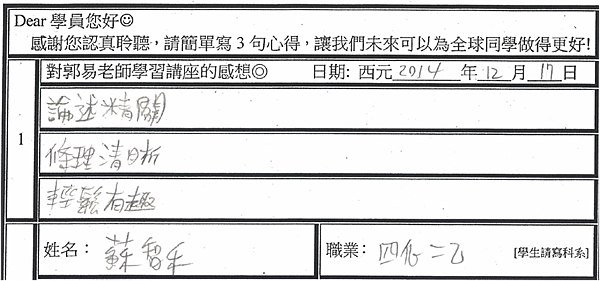 Dear 學員您好☺
感謝您認真聆聽，請簡單寫 3 句心得，讓我們未來可以為全球同學做得更好!
對郭易老師學習講座的感想◎ 日期: 西元 2014 年 12 月 17 日
1
論述精闢
條理清晰
輕鬆有趣
姓名： 蘇智禾 職業： 四化二乙 [學生請寫科系]